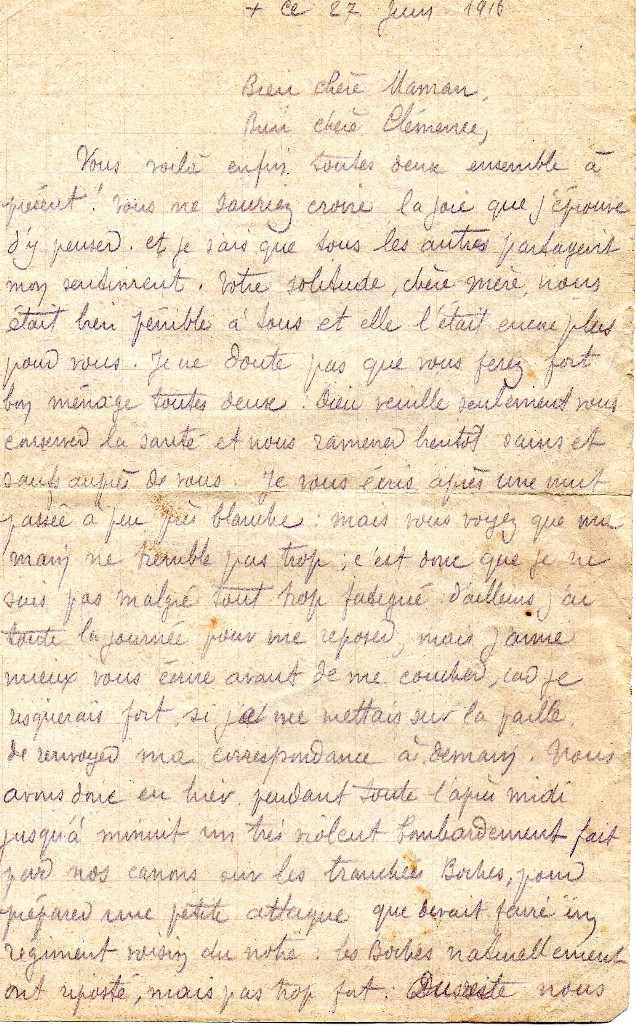 + ce 27 Juin 1916
Bien chère Maman,
Bien chère Clémence,
Vous voilà enfin toutes deux ensemble à
présent ! vous ne sauriez croire la joie que j'éprouve
d'y penser. et je sais que tous les autres partagent
mon sentiment. Votre solitude, chère mère, nous
était bien pénible à tous et elle l'était encore plus
pour vous. Je ne doute pas que vous ferez fort
bon ménage toutes deux. Dieu veuille seulement vous
conserver la santé et nous ramener bientôt sains et
saufs auprès de vous. Je vous écris après une nuit
passée à peu près blanche : mais vous voyez que ma
main ne tremble pas trop ; c'est donc que je ne
suis pas malgré tout trop fatigué d'ailleurs j'ai
toute la journée pour me reposer, mais j'aime
mieux vous écrire avant de me coucher, car je
risquerais fort, si je me mettais sur la paille,
de renvoyer ma correspondance à demain. Nous
avons donc eu hier pendant toute l'après midi
jusqu'à minuit un très violent bombardement fait
par nos canons sur les tranchées Boches, pour
préparer une petite attaque que devait faire un
régiment voisin du notre : les Boches naturellement
ont riposté, mais pas trop fort. Du reste nous